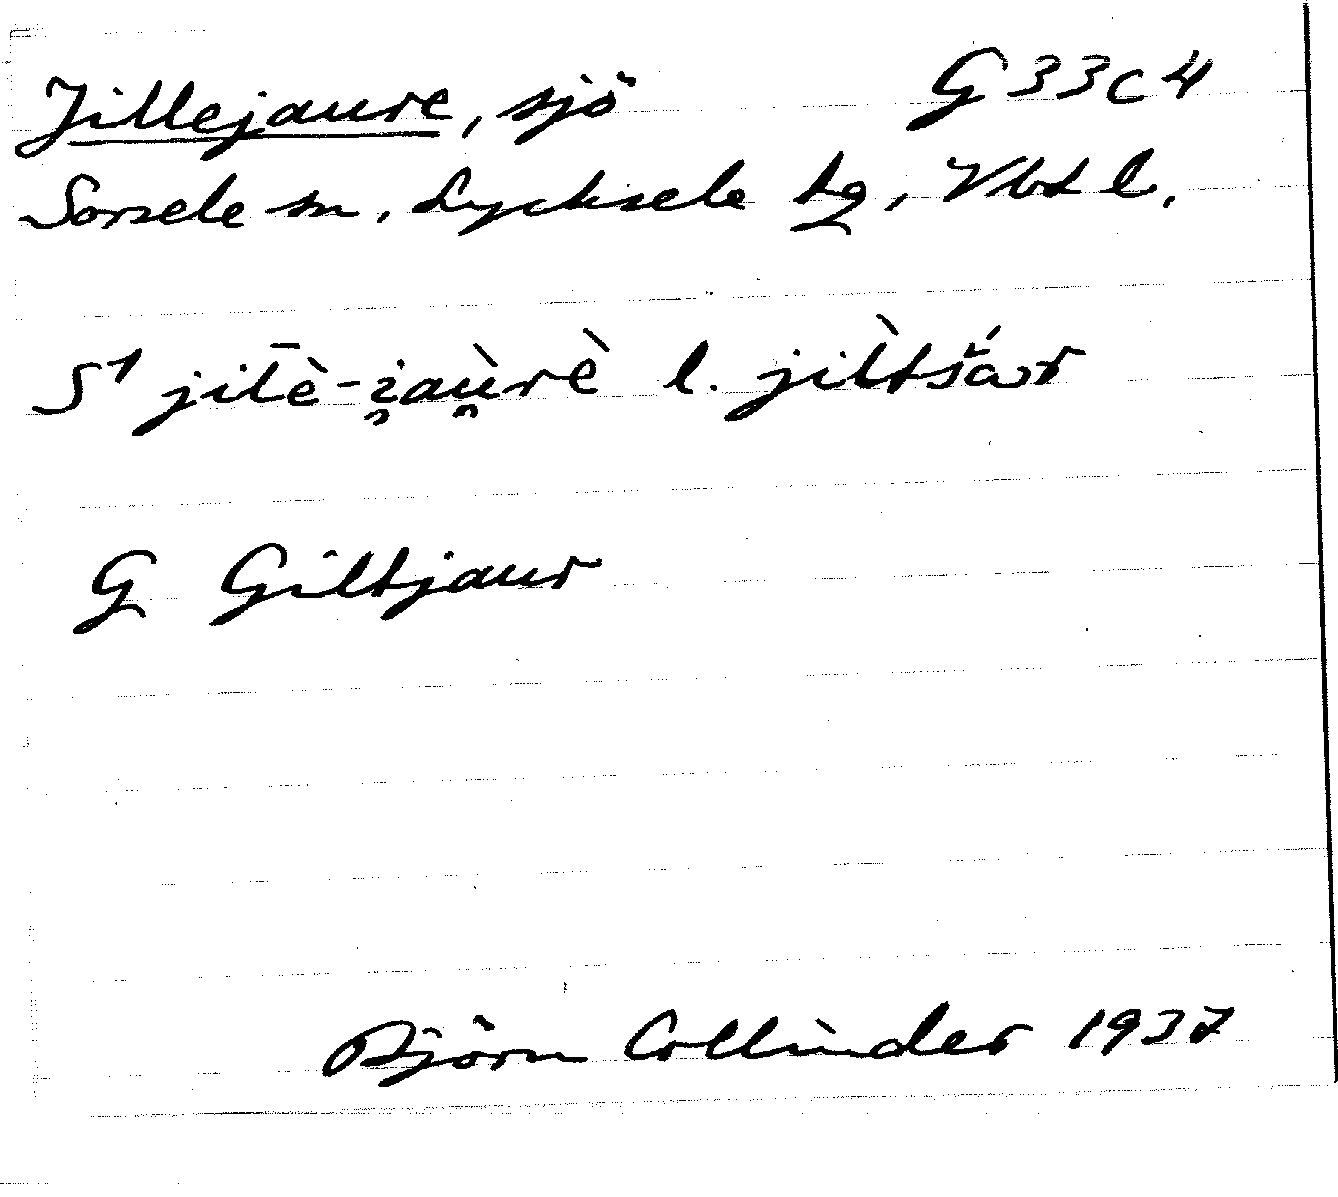 Jillejaure, sjö G 33 c 4
Sorsele sn, Lycksele lg, Vbtl.
S1 jil̄è-i̯au̯rè l. jilt́šár
G Giltjaur
Björn Collinder 1937